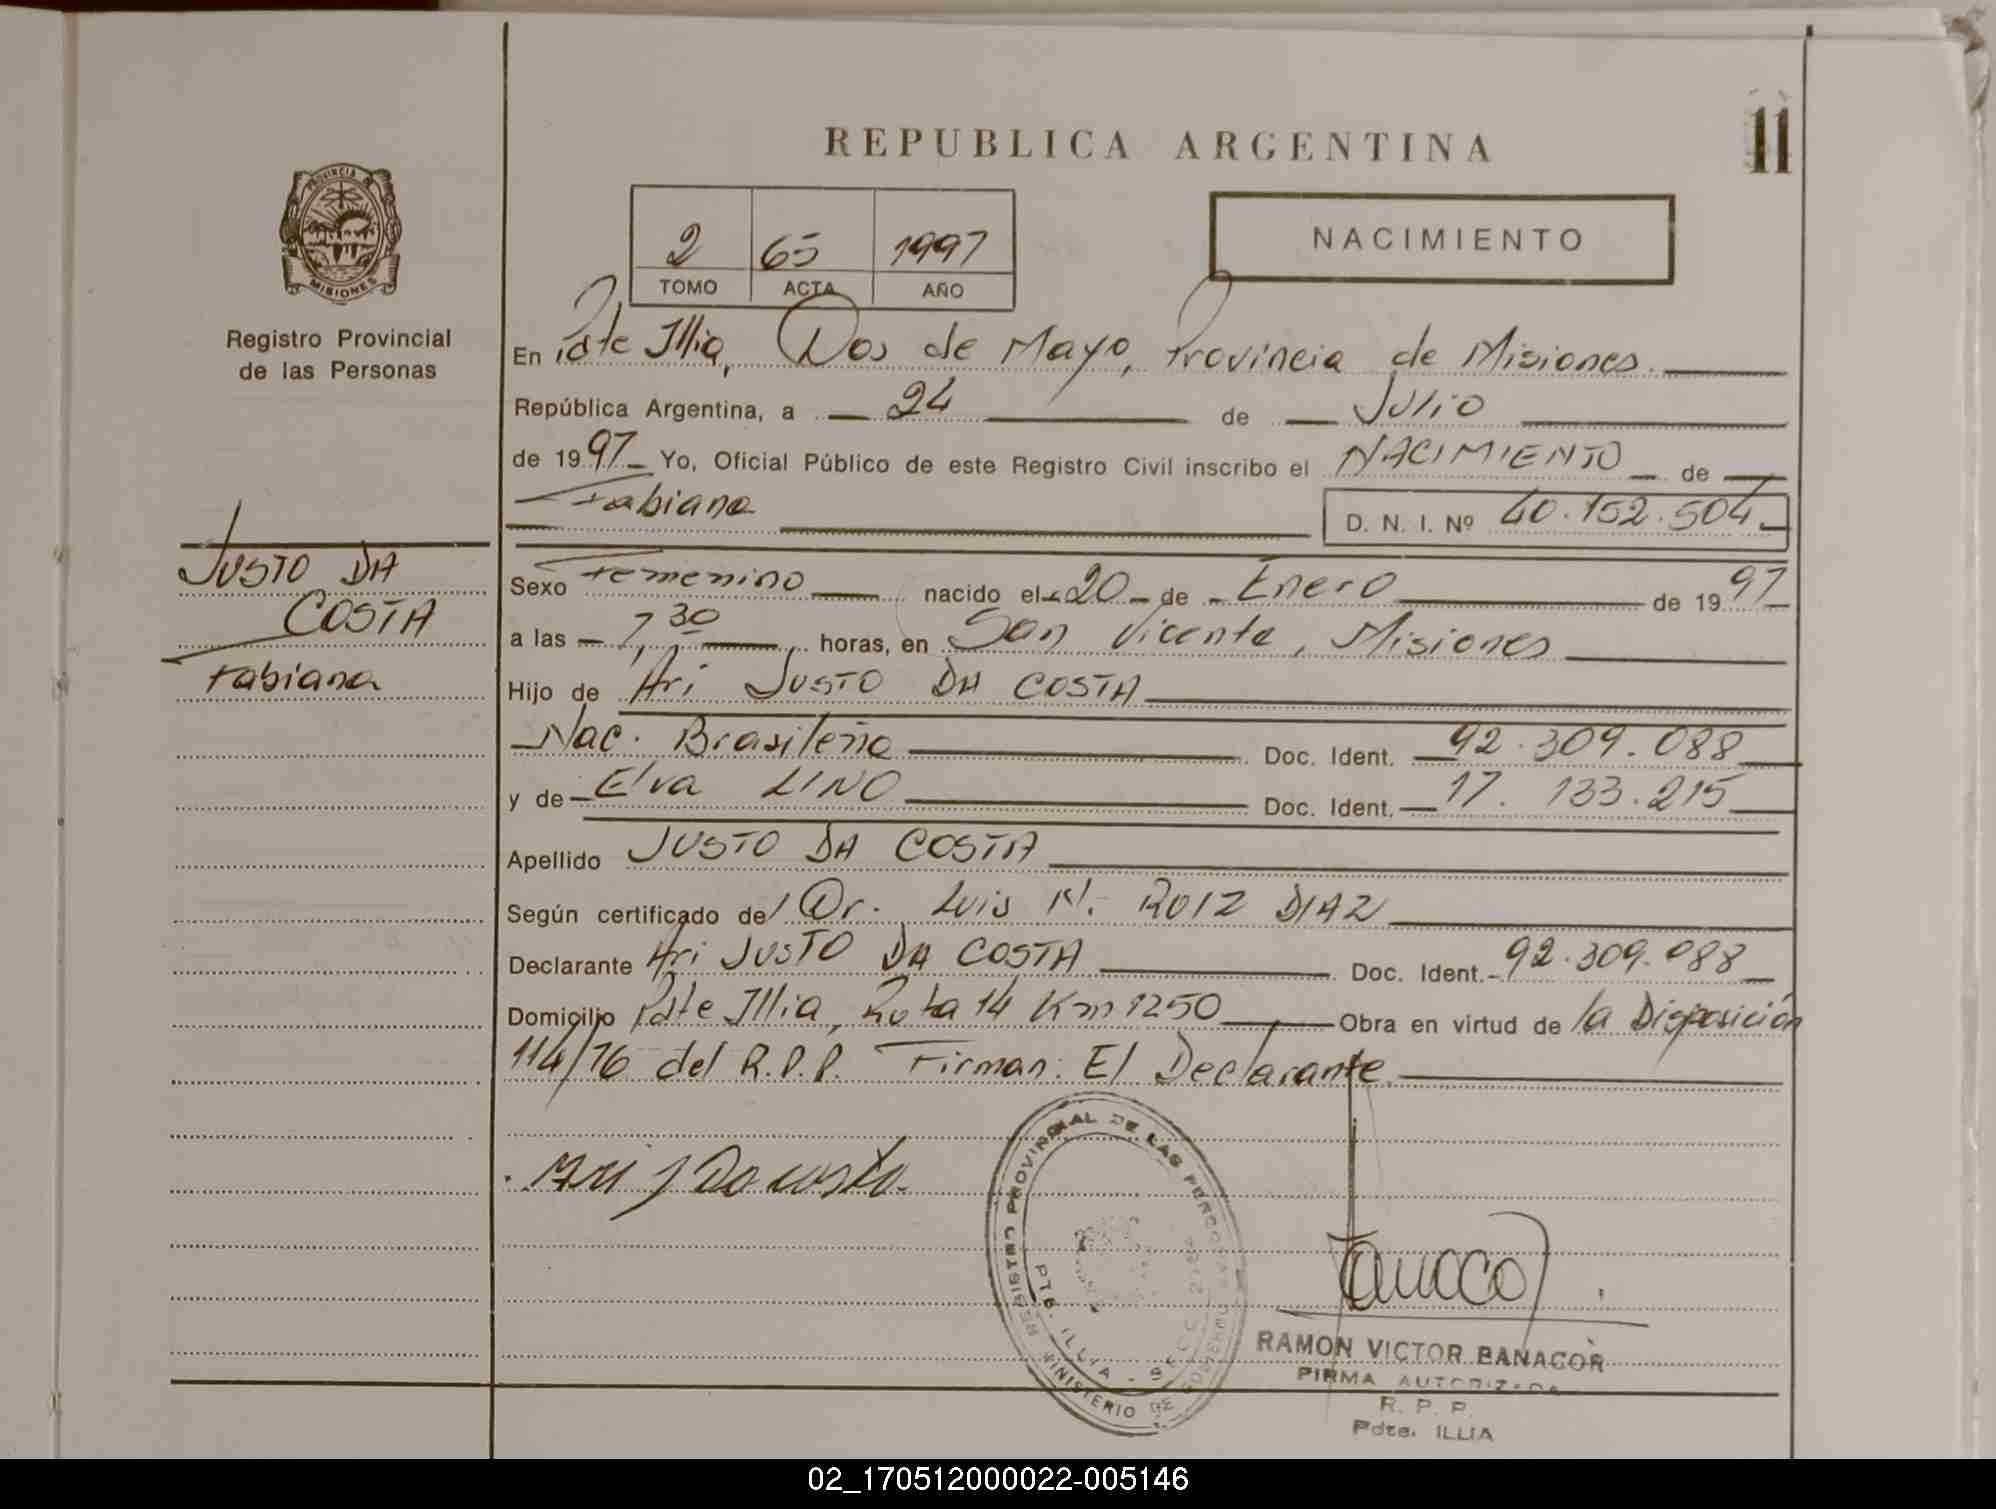 REPUBLICA ARGENTINA
11
PROVINCIA DE
MISIONES
Registro Provincial
de las Personas
2 65 1997
TOMO ACTA AÑO
NACIMIENTO
En Pdte Illia, Dos de Mayo, Provincia de Misiones.
República Argentina, a 24 de Julio
de 1997 Yo, Oficial Público de este Registro Civil inscribo el NACIMIENTO de
Fabiana
D. N. I. Nº 40.152.504
JUSTO DA
COSTA
Fabiana
Sexo Femenino nacido el 20 de Enero de 1997
a las 7,30 horas, en San Vicente, Misiones
Hijo de Ari JUSTO DA COSTA
Nac. Brasileña Doc. Ident. 92.309.088
y de Elva LINO Doc. Ident. 17.133.215
Apellido JUSTO DA COSTA
Según certificado de Dr. Luis ROIZ DIAZ
Declarante Ari JUSTO DA COSTA Doc. Ident. 92.309.088
Domicilio Pdte Illia, Ruta 14 Km 1250 Obra en virtud de la Disposición
114/76 del R.P.P. Firman: El Declarante.
Ari J Da costa
REGISTRO PROVINCIAL DE LAS PERSONAS
MINISTERIO DE GOBIERNO
PTE. ILLIA
RAMON VICTOR BANACOR
FIRMA AUTORIZADA
R. P. P.
Pdte. ILLIA
02_170512000022-005146